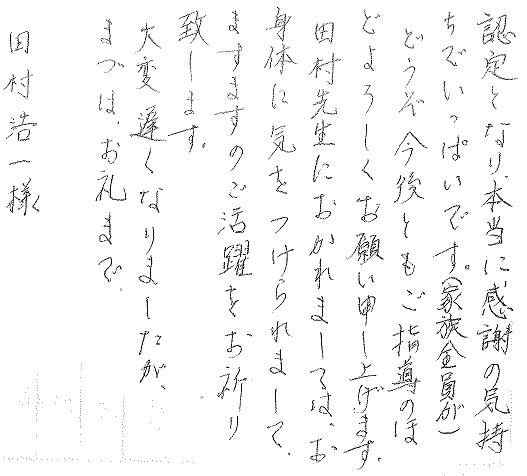 認定となり、本当に感謝の気持
ちでいっぱいです。(家族全員が)
どうぞ今後ともご指導のほ
どよろしくお願い申し上げます。
田村先生におかれましては、お
身体に気をつけられまして、
ますますのご活躍をお祈り
致します。
大変遅くなりましたが、
まづは、お礼まで。
田村浩一様